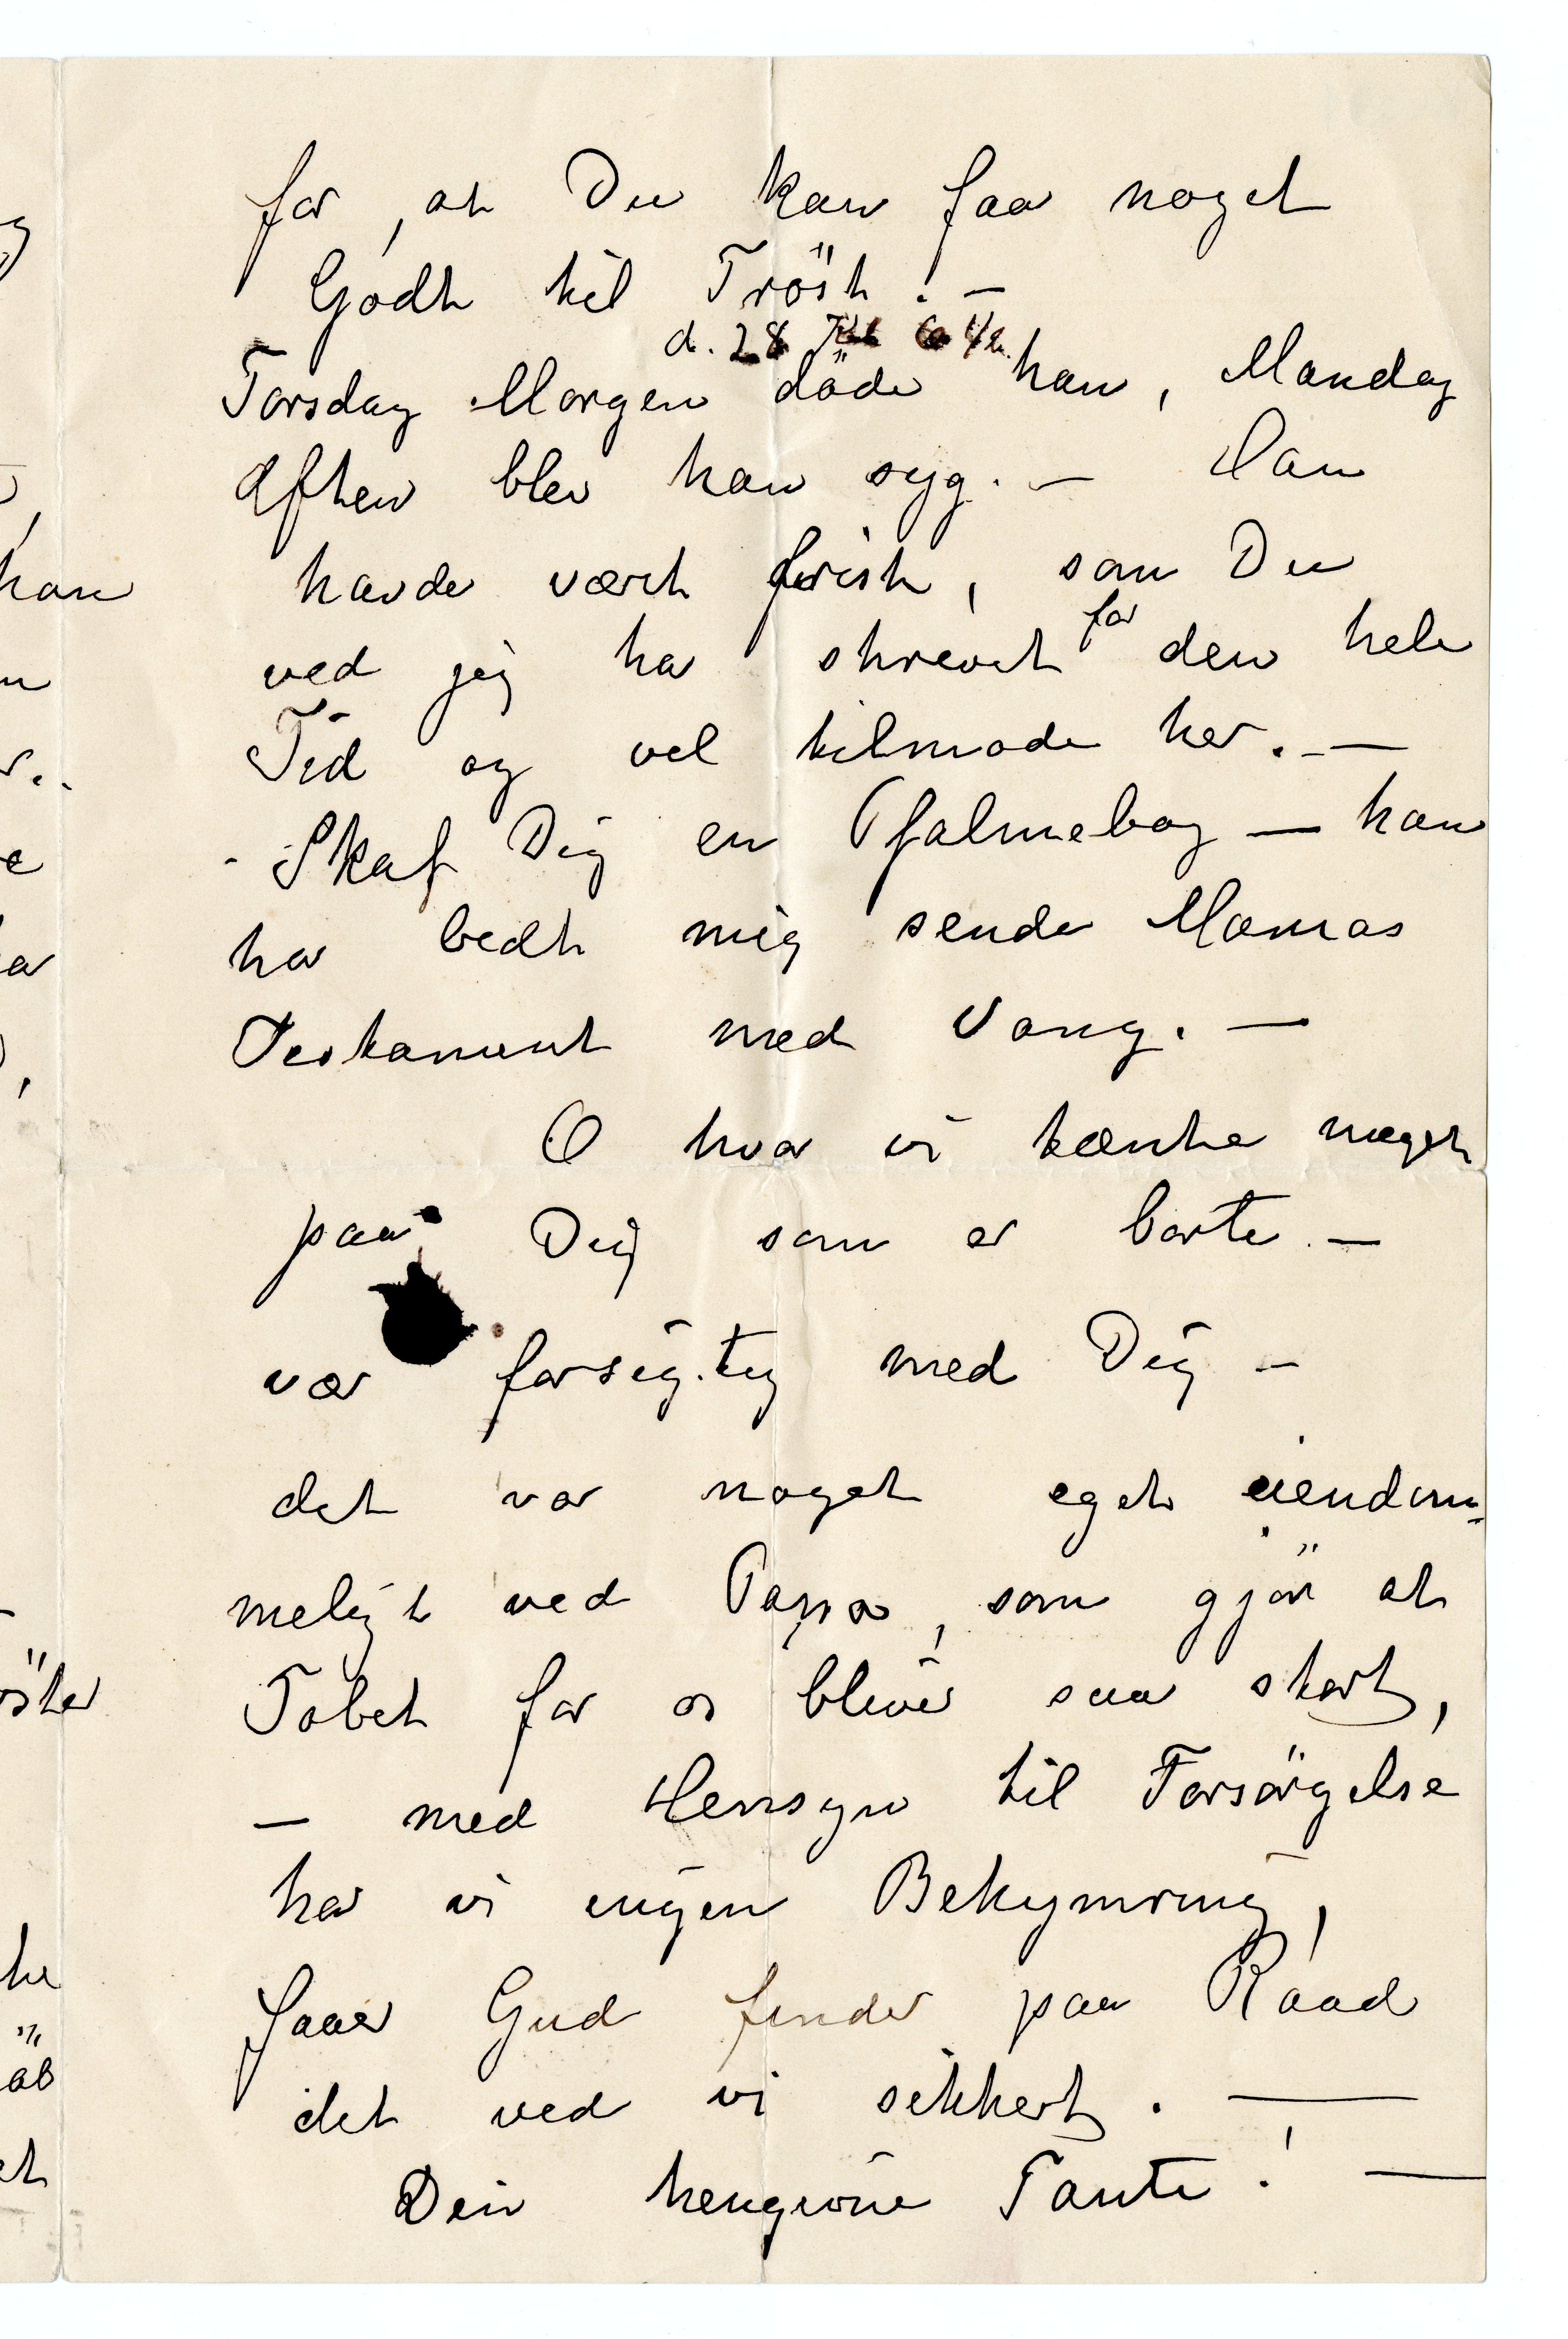 for, at Du kan faa noget
Godt til Tröst. —
d. 28 Kl 6 1/2
Torsdag Morgen döde han, Mandag
Aften blev han syg. — Han
havde været frisk, som Du
ved jeg ha skrevet for den hele
Tid og vel tilmode her. —
- Skaf Dig en Psalmebog — han
ha bedt mig sende Mamas
Testament med Vang. —
O hvor vi tænke meget
paa Dig som er borte —
vær forsigtig med Dig —
det var noget eget eiendom-
meligt ved Papa, som gjör at
Tabet for os bliver saa stort,
— med Hensyn til Forsörgelse
har vi ingen Bekymring,
Gud finder paa Raad
det ved vi sikkert. —
Din hengivne Tante! —
han